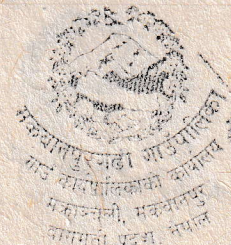 मकवानपुरगढी गाउँपालिका
गाउँ कार्यपालिकाको कार्यालय
मकवानपुर
नेपाल